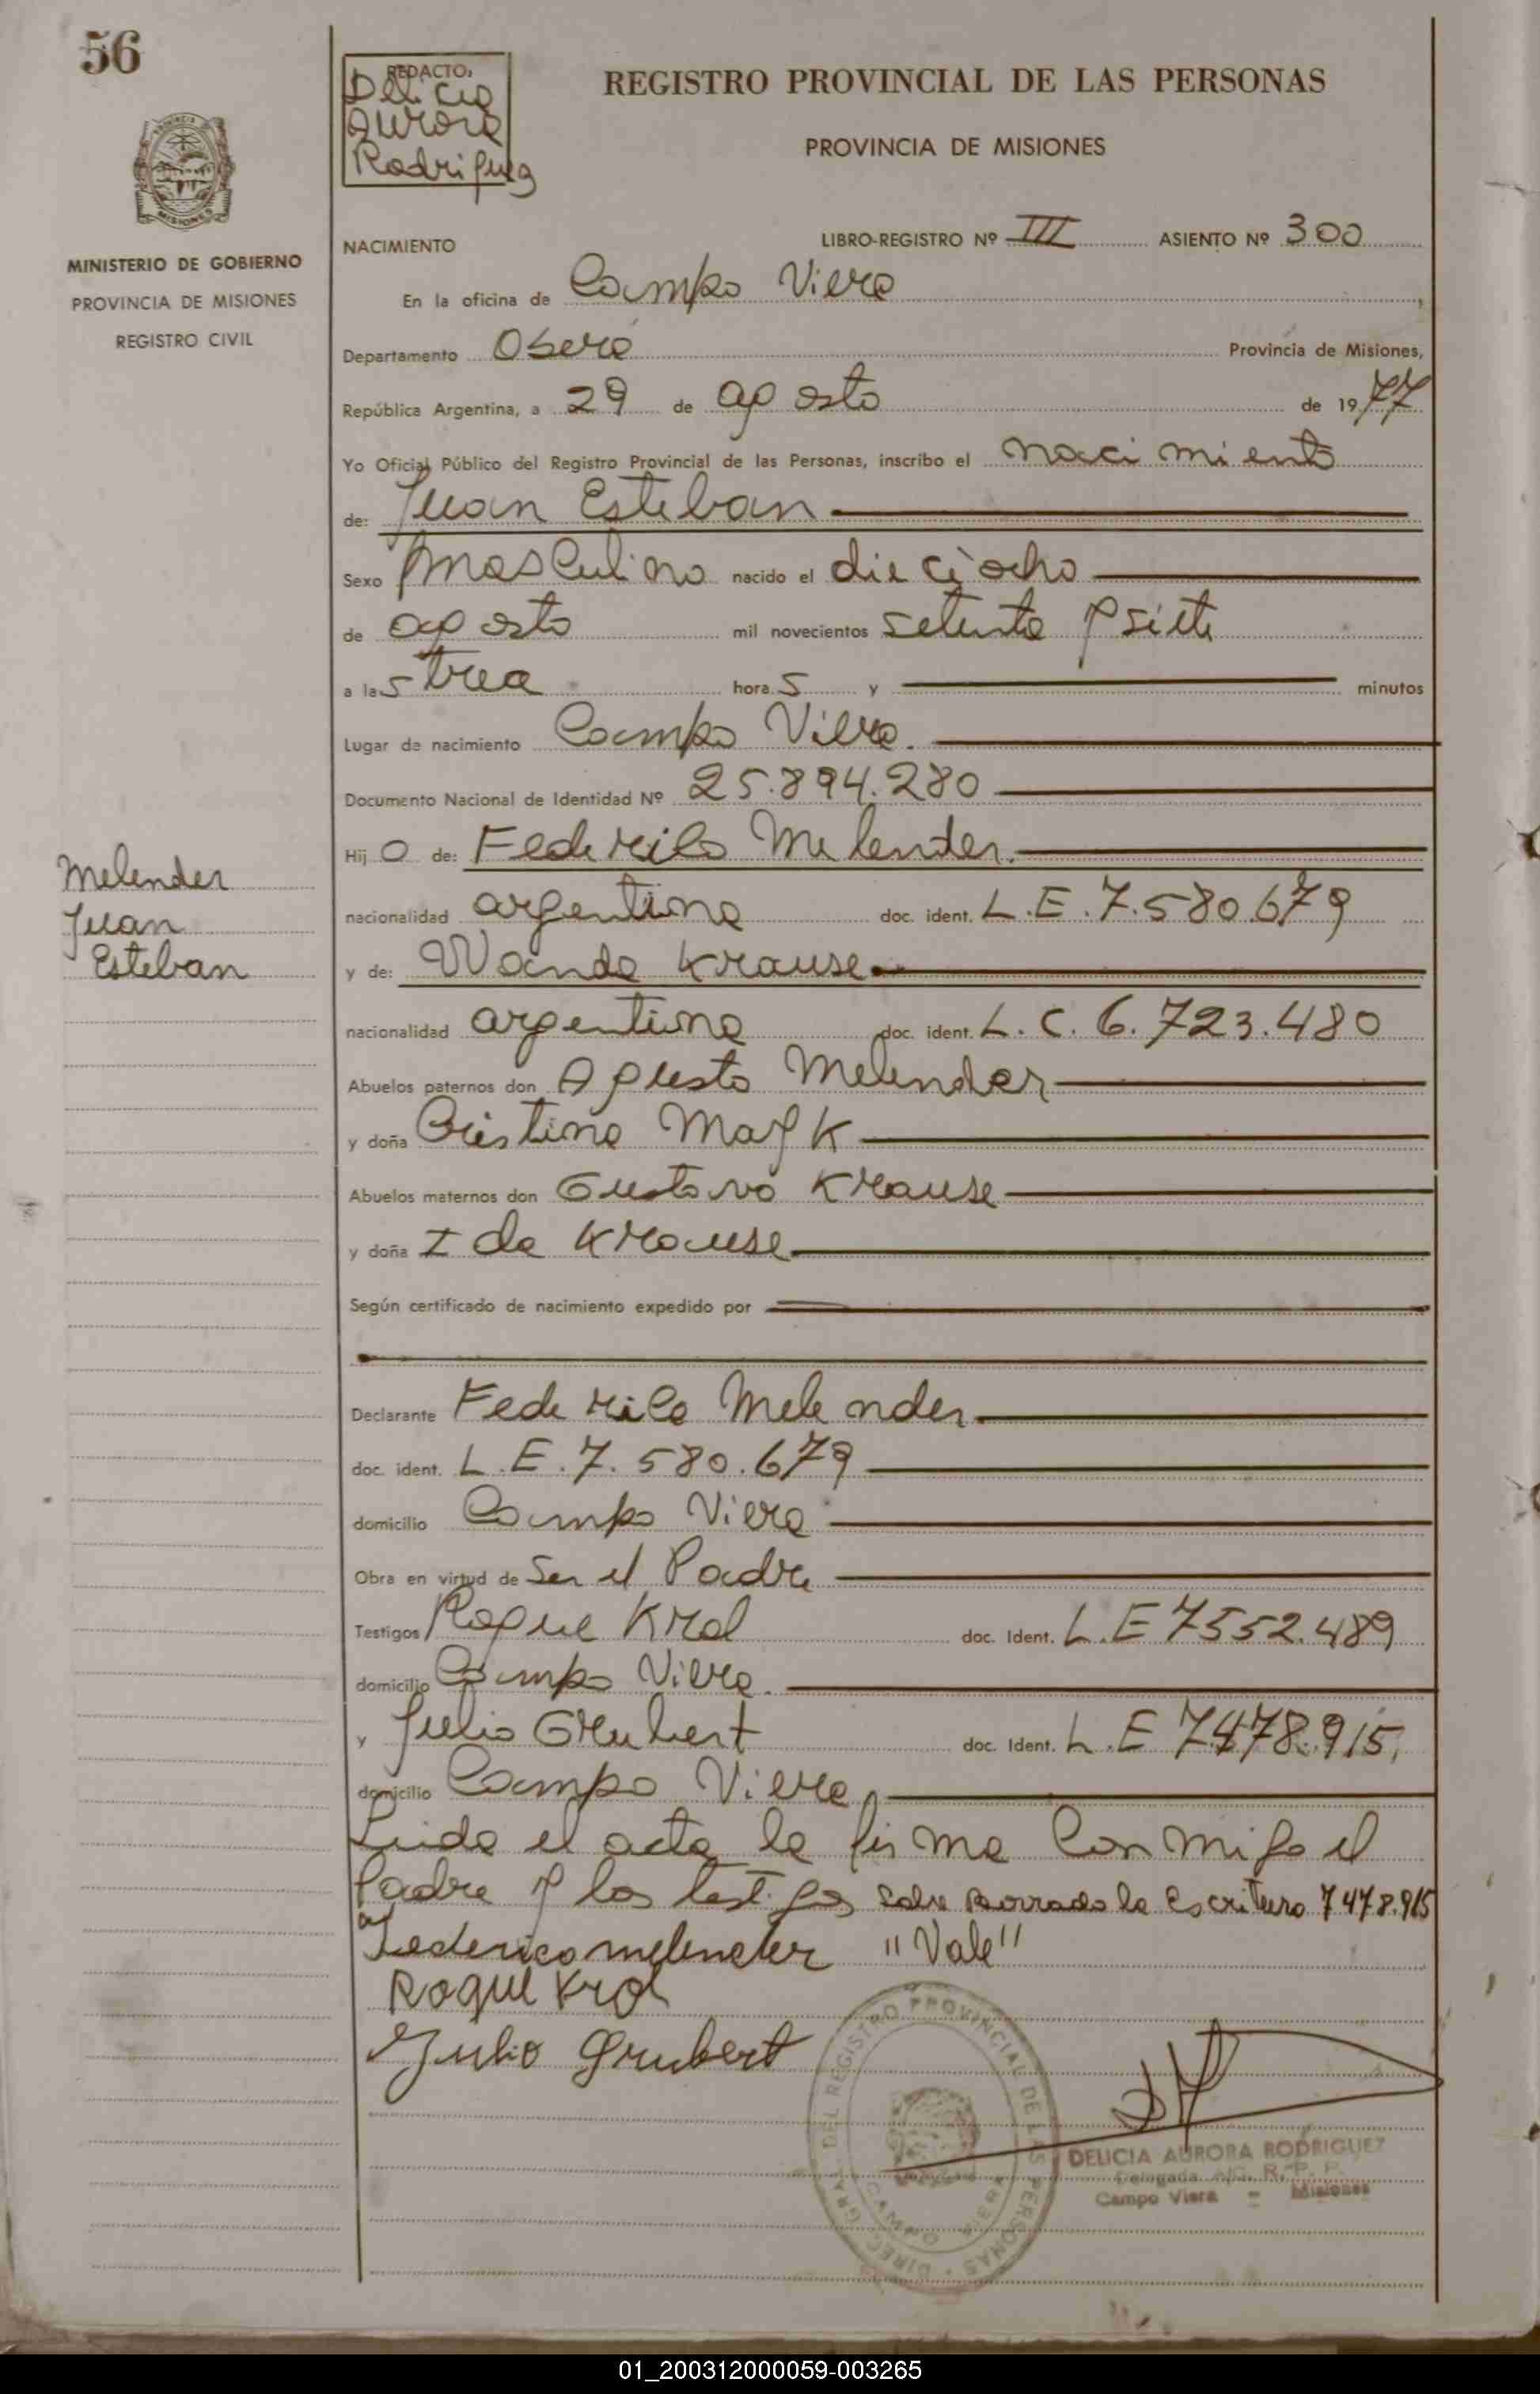 56
REDACTO:
Delicia
Aurora
Rodriguez
REGISTRO PROVINCIAL DE LAS PERSONAS
PROVINCIA DE MISIONES
PROVINCIA
MISIONES
MINISTERIO DE GOBIERNO
PROVINCIA DE MISIONES
REGISTRO CIVIL
NACIMIENTO
LIBRO-REGISTRO Nº III ASIENTO Nº 300
En la oficina de Campo Viera,
Departamento Oberá Provincia de Misiones,
República Argentina, a 29 de agosto de 1977
Yo Oficial Público del Registro Provincial de las Personas, inscribo el nacimiento
de: Juan Esteban
Sexo masculino nacido el dieciocho
de agosto mil novecientos setenta y siete
a las tres horas y minutos
Lugar de nacimiento Campo Viera.
Documento Nacional de Identidad Nº 25.894.280
Hijo de: Federico Melender.
nacionalidad argentina doc. ident. L.E. 7.580.679
y de: Wanda Krause
nacionalidad argentina doc. ident. L.C. 6.723.480
Abuelos paternos don Agusto Melender
y doña Cristina Mayk
Abuelos maternos don Gustavo Krause
y doña Ida Krause
Según certificado de nacimiento expedido por
Declarante Federico Melender
doc. ident. L.E. 7.580.679
domicilio Campo Viera
Obra en virtud de Ser el Padre
Testigos Roque Krol doc. Ident. L.E 7552.489
domicilio Campo Viera.
y Julio Grubert doc. Ident. L.E 7.478.915,
domicilio Campo Viera,
Leida el acta la firma conmigo el
Padre y los testigos sobre borrado la escritura 7478.915
Federico melender "Vale"
Roque Krol
Julio Grubert
Melender
Juan
Esteban
DIREC. GRAL. DEL REGISTRO PROVINCIAL DE LAS PERSONAS
CAMPO VIERA
DELICIA AURORA RODRIGUEZ
Delegada A/C. R. P. P.
Campo Viera - Misiones
01_200312000059-003265